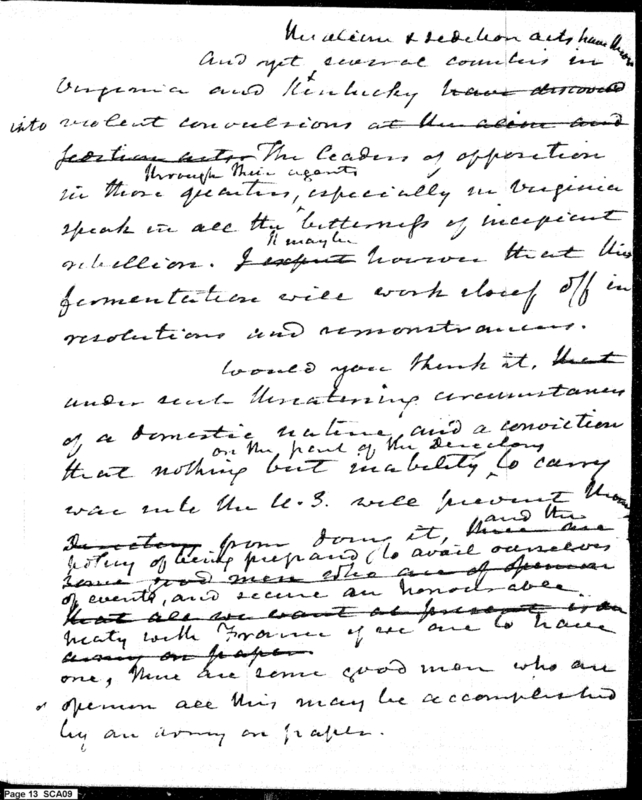 The alien & sedition acts have thrown
And yet several counties in
Virginia and Kentucky have discovered
into violent convulsions at the alien and
sedition acts. The leaders of opposition
through their agents
in those quarters, especially in Virginia
speak in all the bitterness of incipient
It may be
rebellion. I expect however that this
fermentation will work itself off in
resolutions and remonstrances.
Would you think it, that
under such threatening circumstances
of a domestic nature, and a conviction
on the part of the Directory
that nothing but inability to carry
war into the U.S. will prevent them
and the
Directory from doing it, there are
policy of being prepared to avail ourselves
some good men who are of opinion
of events, and secure an honourable
that all we want at present is an
treaty with France if we are to have
army on paper
one, there are some good men who are
of opinion all this may be accomplished
by an army on paper.
Page 13 SCA09